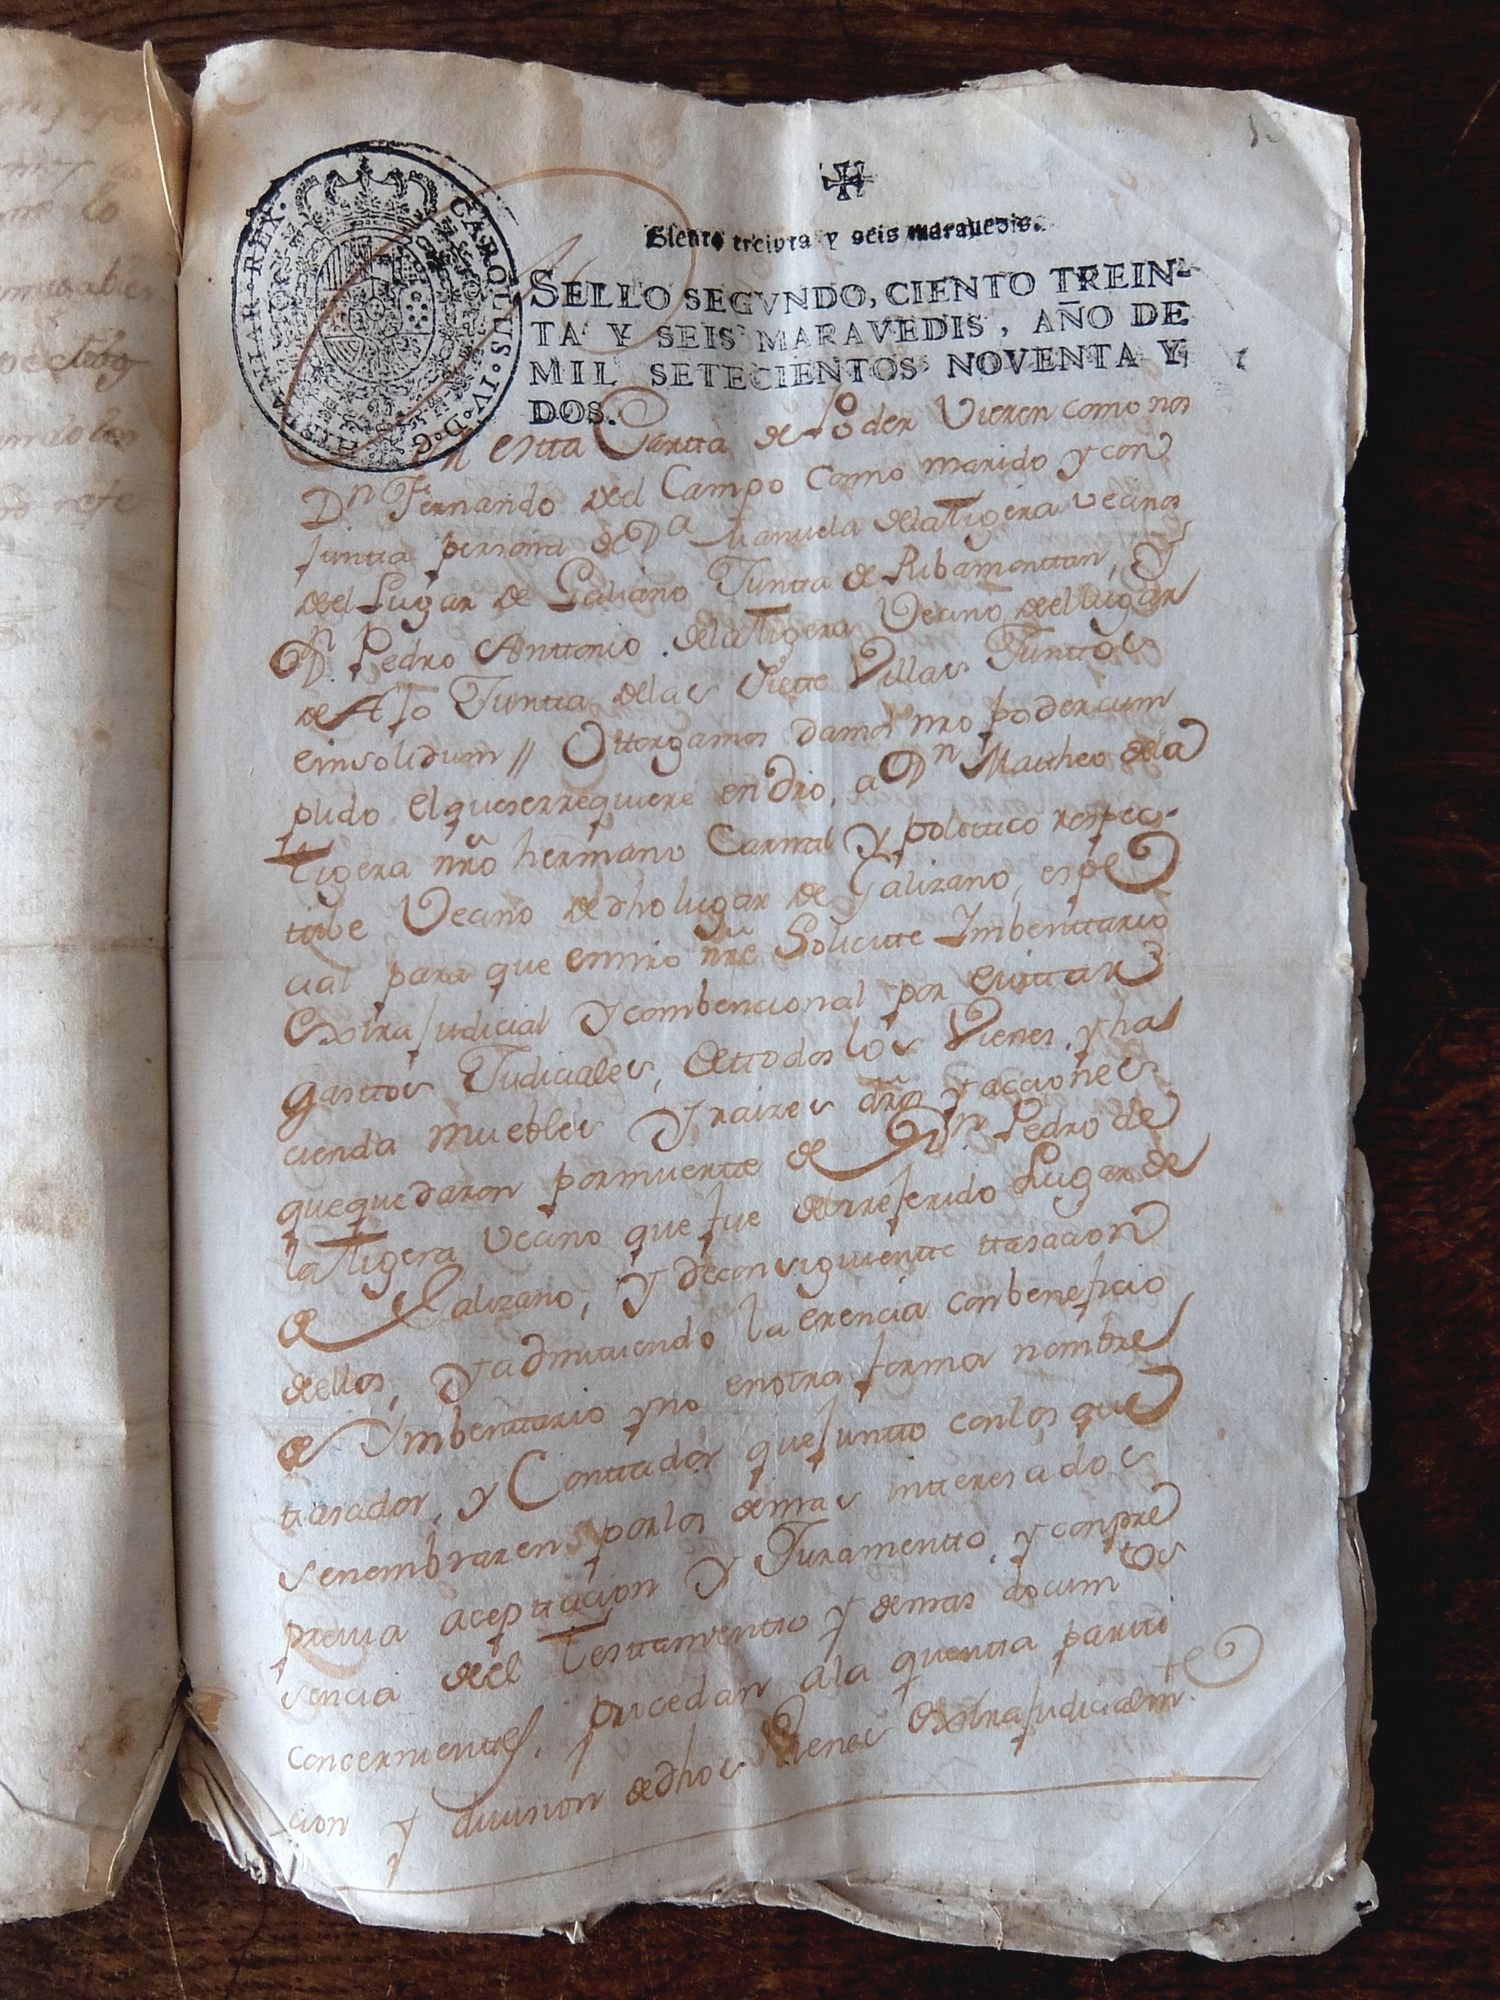 13
HISPANIAR·REX· CAROLUS·IV·D·G·
Ciento treinta y seis maravedis.
SELLO SEGVNDO, CIENTO TREIN-
TA Y SEIS MARAVEDIS, AÑO DE
MIL SETECIENTOS NOVENTA Y
DOS.
En estta Cartta de Poder Vieren como nos
Dn Fernando del Campo como marido y con
juntta persona de Da Manuela dela Tigera vecinos
del Lugar de Galizano Juntta de Ribamonttan, y
D. Pedro Anttonio dela Tigera Vecino del lugar
de Ajo Juntta delas Siette Villas Junttos
einsolidum // Ottorgamos damos nro poder cum
plido el queserrequiere en dro, a Dn Matheo dela
Tigera nro hermano Carnal y politico respec-
tibe Vecino de dho lugar de Galizano, espe
cial para que ennro nre Solicite Imbenttario
Extrajudicial y combencional por evittar
gasttos Judiciales, attodos los Vienes, y ha
cienda muebles y raizes dros y acciones
quequedaron pormuertte de Dn Pedro de
la Tigera vecino que fue delrreferido Lugar de
Galizano, y deconsiguientte ttasacion
dellos, y admitiendo la erencia conbeneficio
de Imbenttario yno enotra forma nombre
tasador, y Conttador quejuntto conlos que
senembraren porlos demas interesados
previa aceptacion y Juramentto, y conpre
sencia del Testtamentto y demas documtos
concernienttes, procedan ala quentta partti
cion y division de dhos Vienes Extrajudicialmte